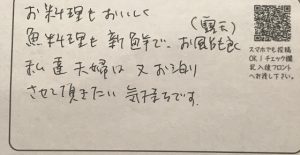 お料理もおいしく
(露天)
魚料理も新鮮で、お風呂も良く
私達夫婦は又お泊り
させて頂きたい気持ちです。
スマホでも投稿
OK!チェック欄
記入後フロント
へお渡し下さい。